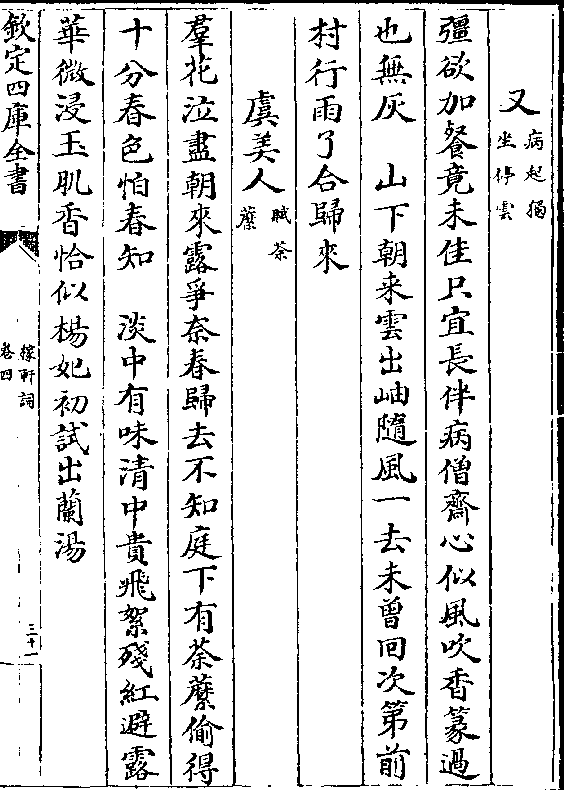 又病起獨坐停雲
彊欲加餐竟未佳只宜長伴病僧齋心似風吹香篆過
也無灰　山下朝来雲出岫隨風一去未曾回次第前
村行雨了合歸來
虞美人賦荼蘼
羣花泣盡朝來露爭奈春歸去不知庭下有荼蘼偷得
十分春色怕春知　淡中有味清中貴飛絮殘紅避露
華微浸玉肌香恰似楊妃初試出蘭湯
欽定四庫全書
稼軒詞
卷四
三十一